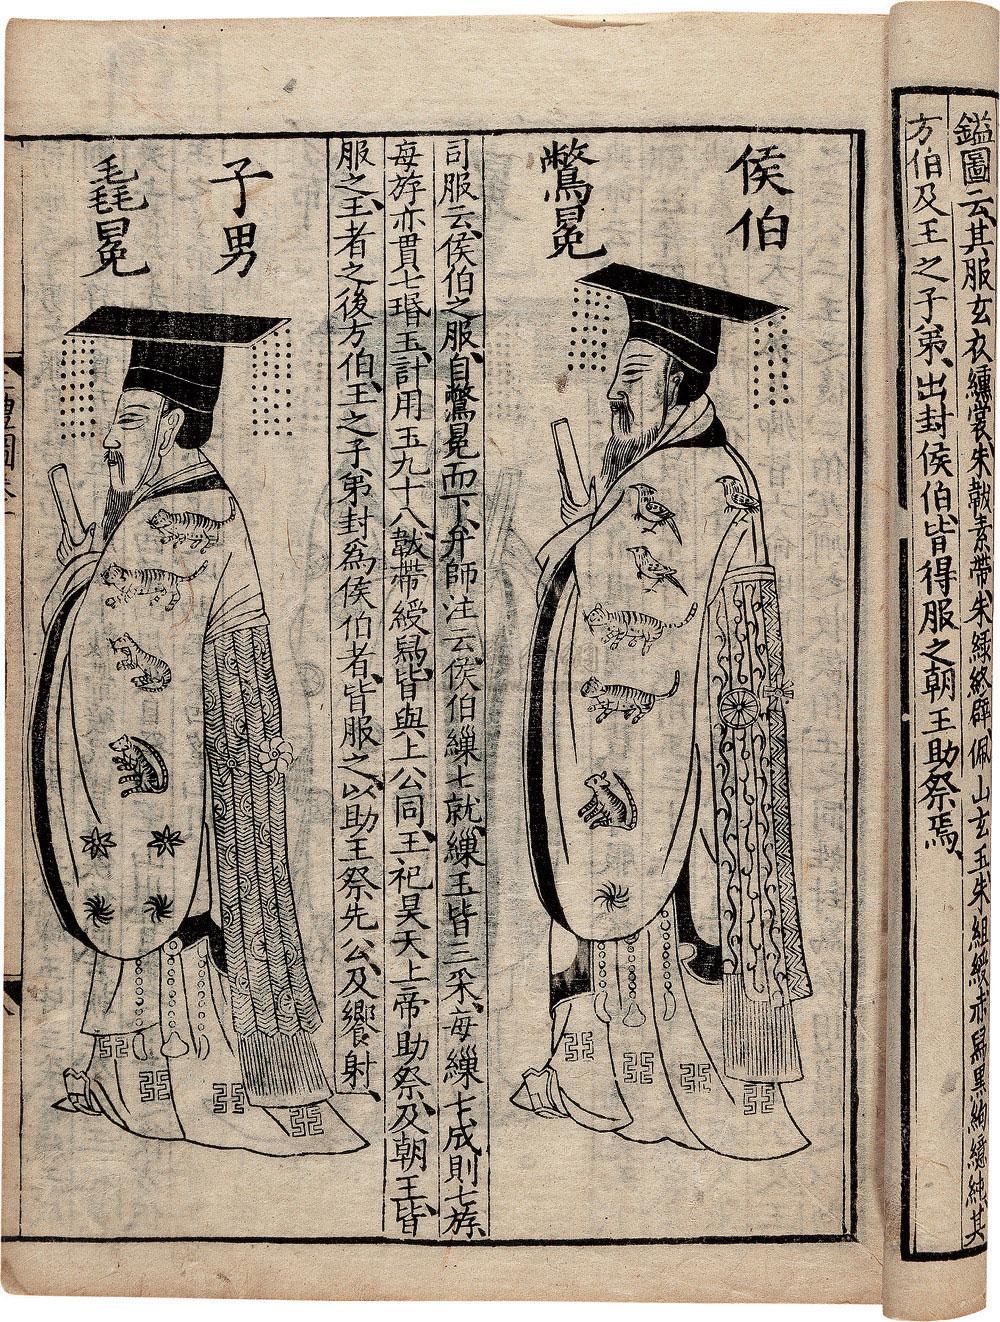 鎰圖云其服玄衣纁裳朱韍素帶朱綠終辟佩山玄玉朱組綬赤舄黑絇繶純其
方伯及王之子弟出封侯伯皆得服之朝王助祭焉
侯伯
鷩冕
司服云侯伯之服自鷩冕而下弁師注云侯伯繅七就繅玉皆三采每繅七成則七旒
每旒亦貫七㻉玉計用玉九十八韍帶綬舄皆與上公同王祀昊天上帝助祭及朝王皆
服之王者之後方伯王之子弟封為侯伯者皆服之以助王祭先公及饗射
子男
毳冕